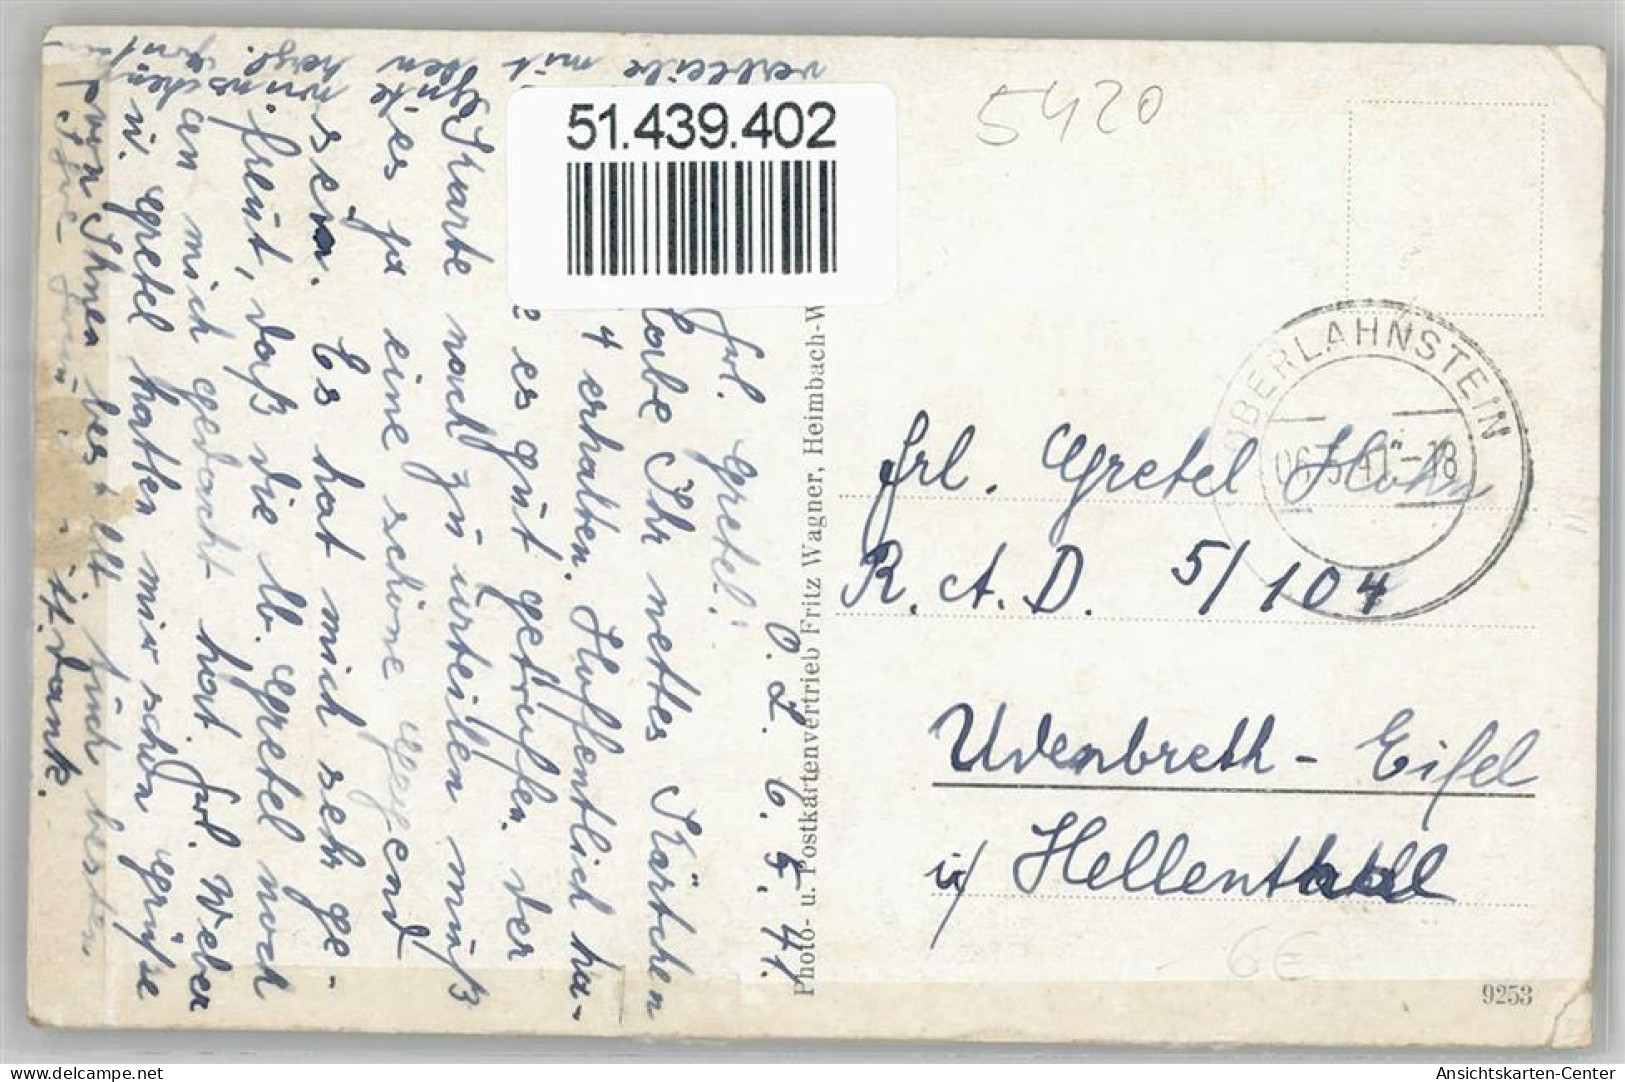 51.439.402
5420
OBERLAHNSTEIN
O. L. 6. 5. 41.
Frl. Gretel!
habe Ihr nettes Kärtchen
erhalten. Hoffentlich ha-
es gut getroffen. der
Karte nach zu urteilen muß
es ja eine schöne Gegend
sein. Es hat mich sehr ge-
freut, daß die lb. Gretel noch
an mich gedacht hat. Frl. Weber
u. Gretel hatten mir schon Grüße
von Ihnen bestellt. besten
Dank.
wünschen
verbleibe mit den
Photo- u. Postkartenvertrieb Fritz Wagner, Heimbach-W
Frl. Gretel
R. A. D. 5/104
Udenbreth - Eifel
ü/ Hellenthal
6€
9253
Ansichtskarten-Center
www.delcampe.net